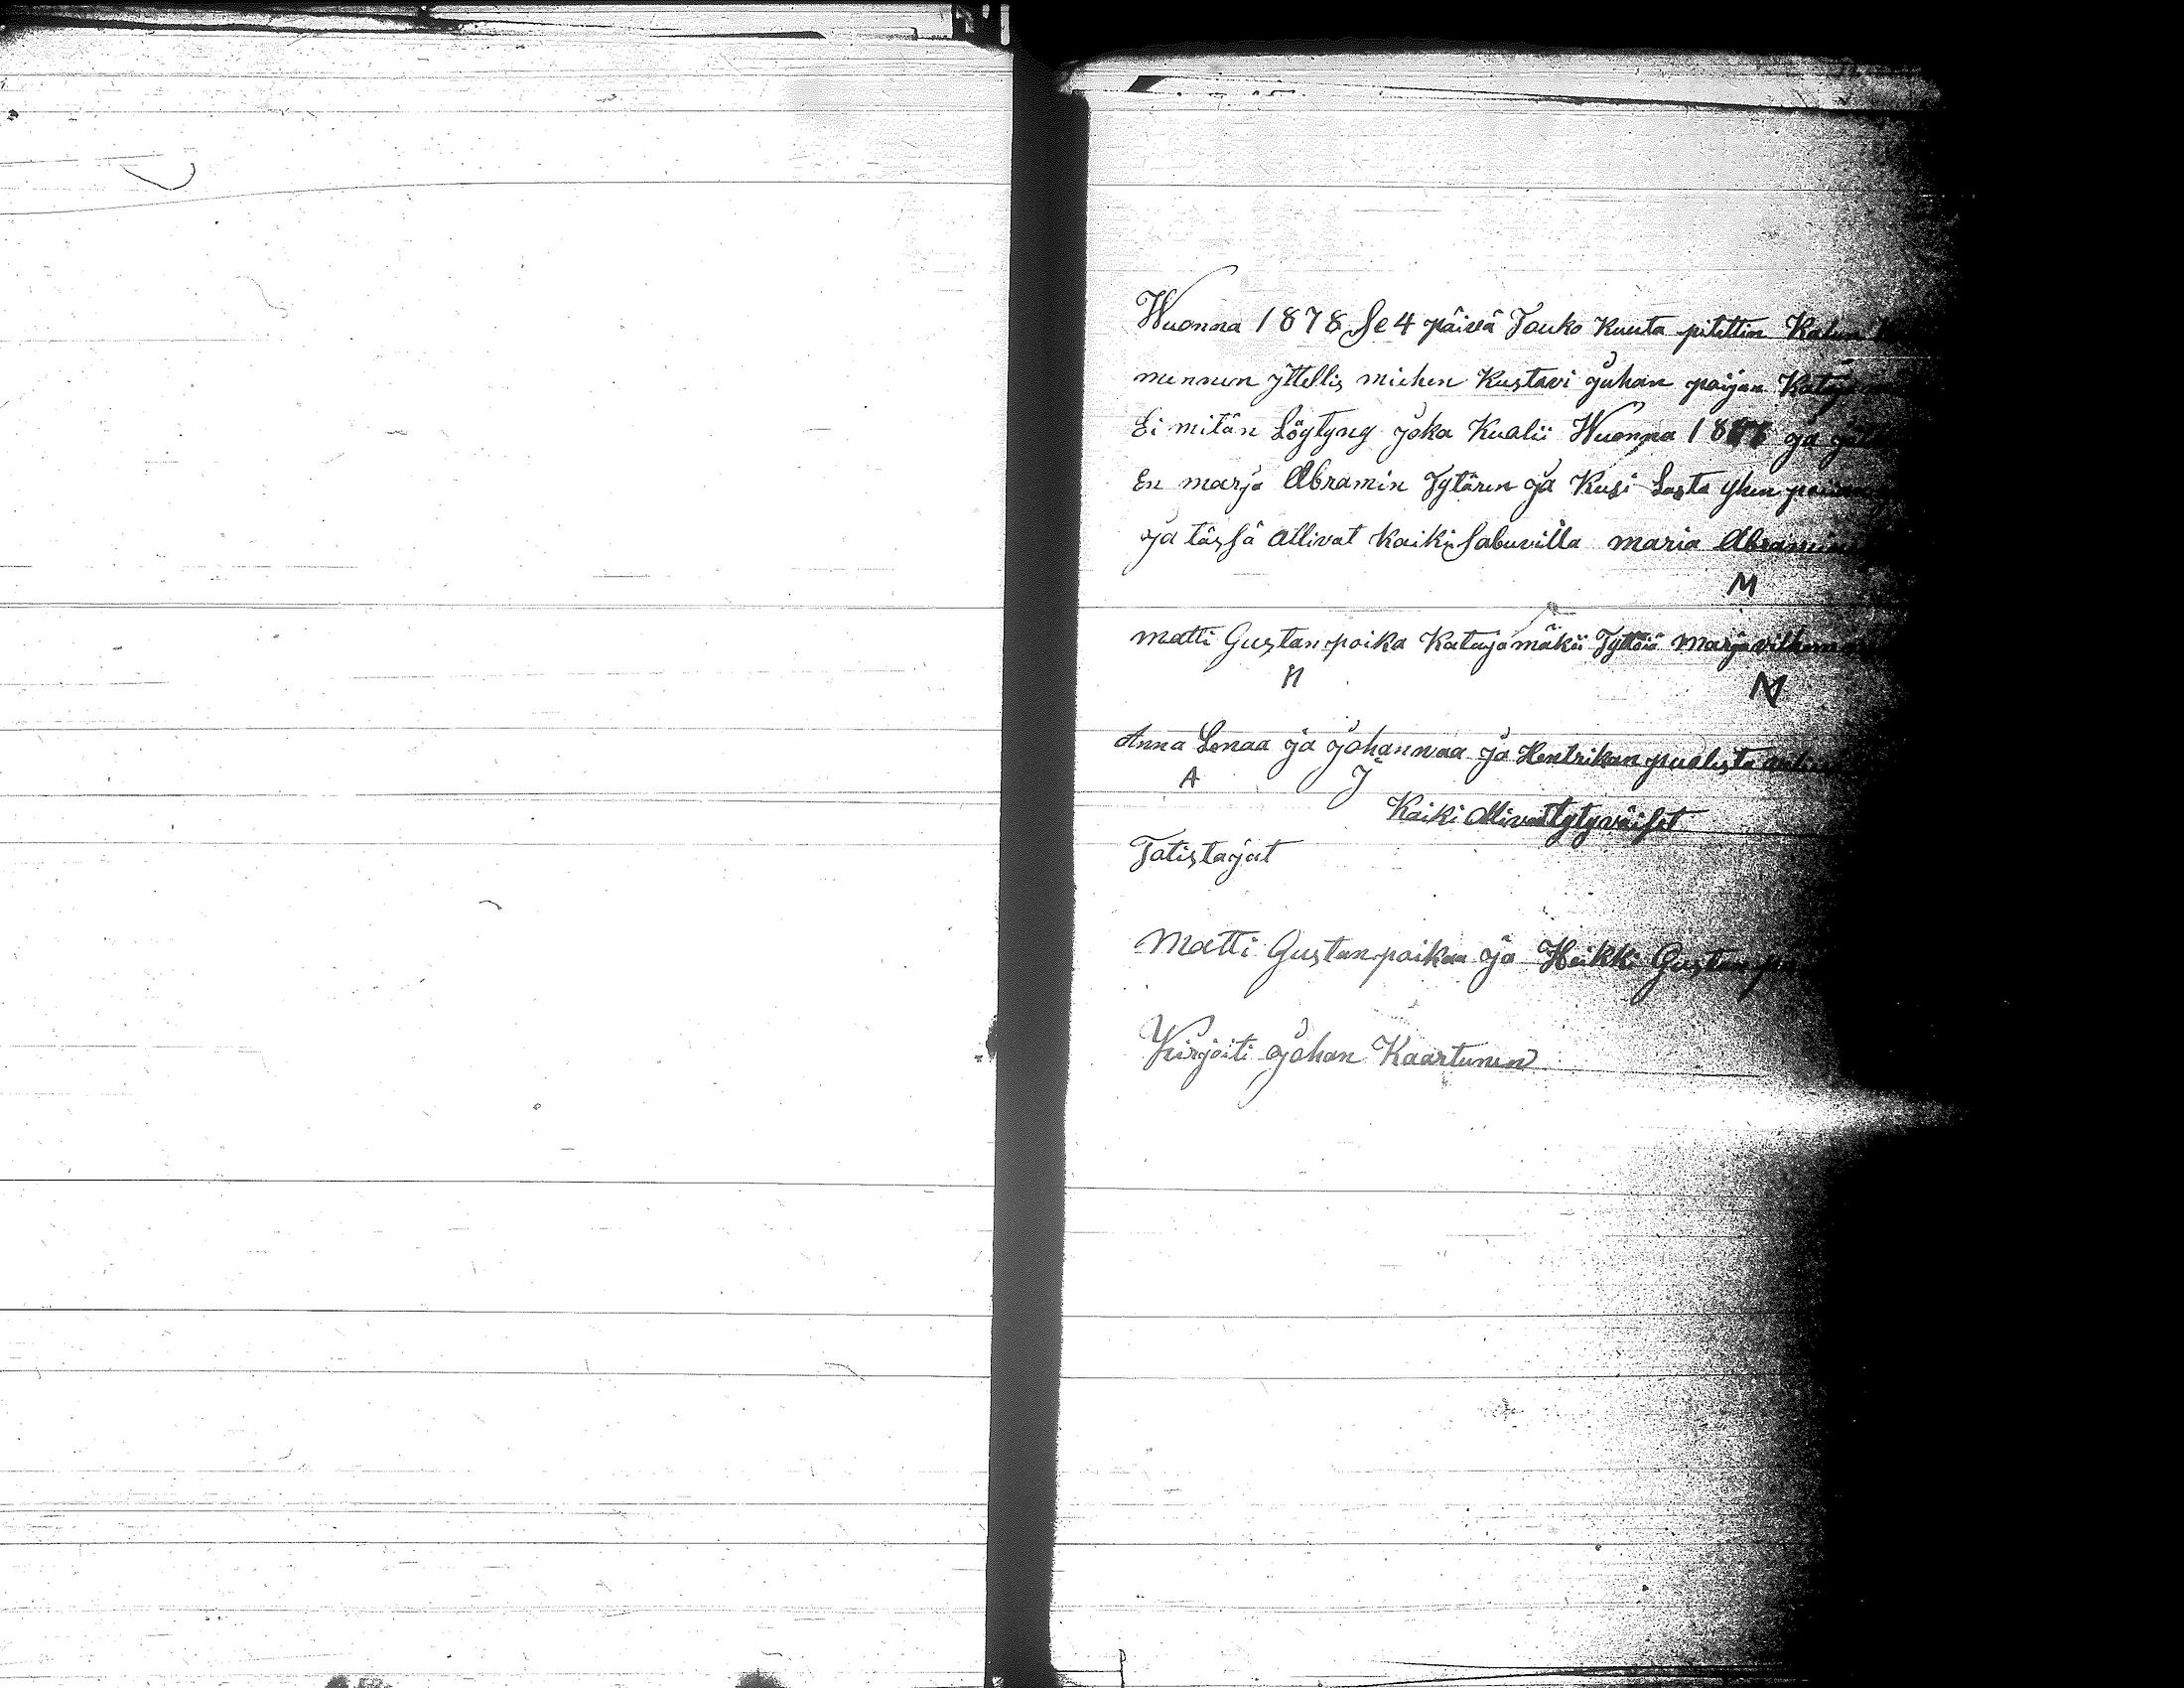 Wuonna 1878 Se 4 päivä Touko Kuuta pitettin Kalun
mennun yttellis miehen Kustavi Juhan poijan
Ei mitän Löytyny Joka Kualii Wuonna ja
En marja Abramin Tytären Ja Kusi Lasta yhen
Ja tässä Ollivat Kaiki Sabuvilla maria
M
Matti Gustanpoika Katajamäkii Tyttöiä Marja
M
Anna Lenaa Ja Johannaa Ja Hentrikan puolista
A J
Kaiki Ollivat tytyväiset
Totistajat
Matti Gustanpoikaa Ja Heikki Gustan
Kirjoiti Johan Kaartunen